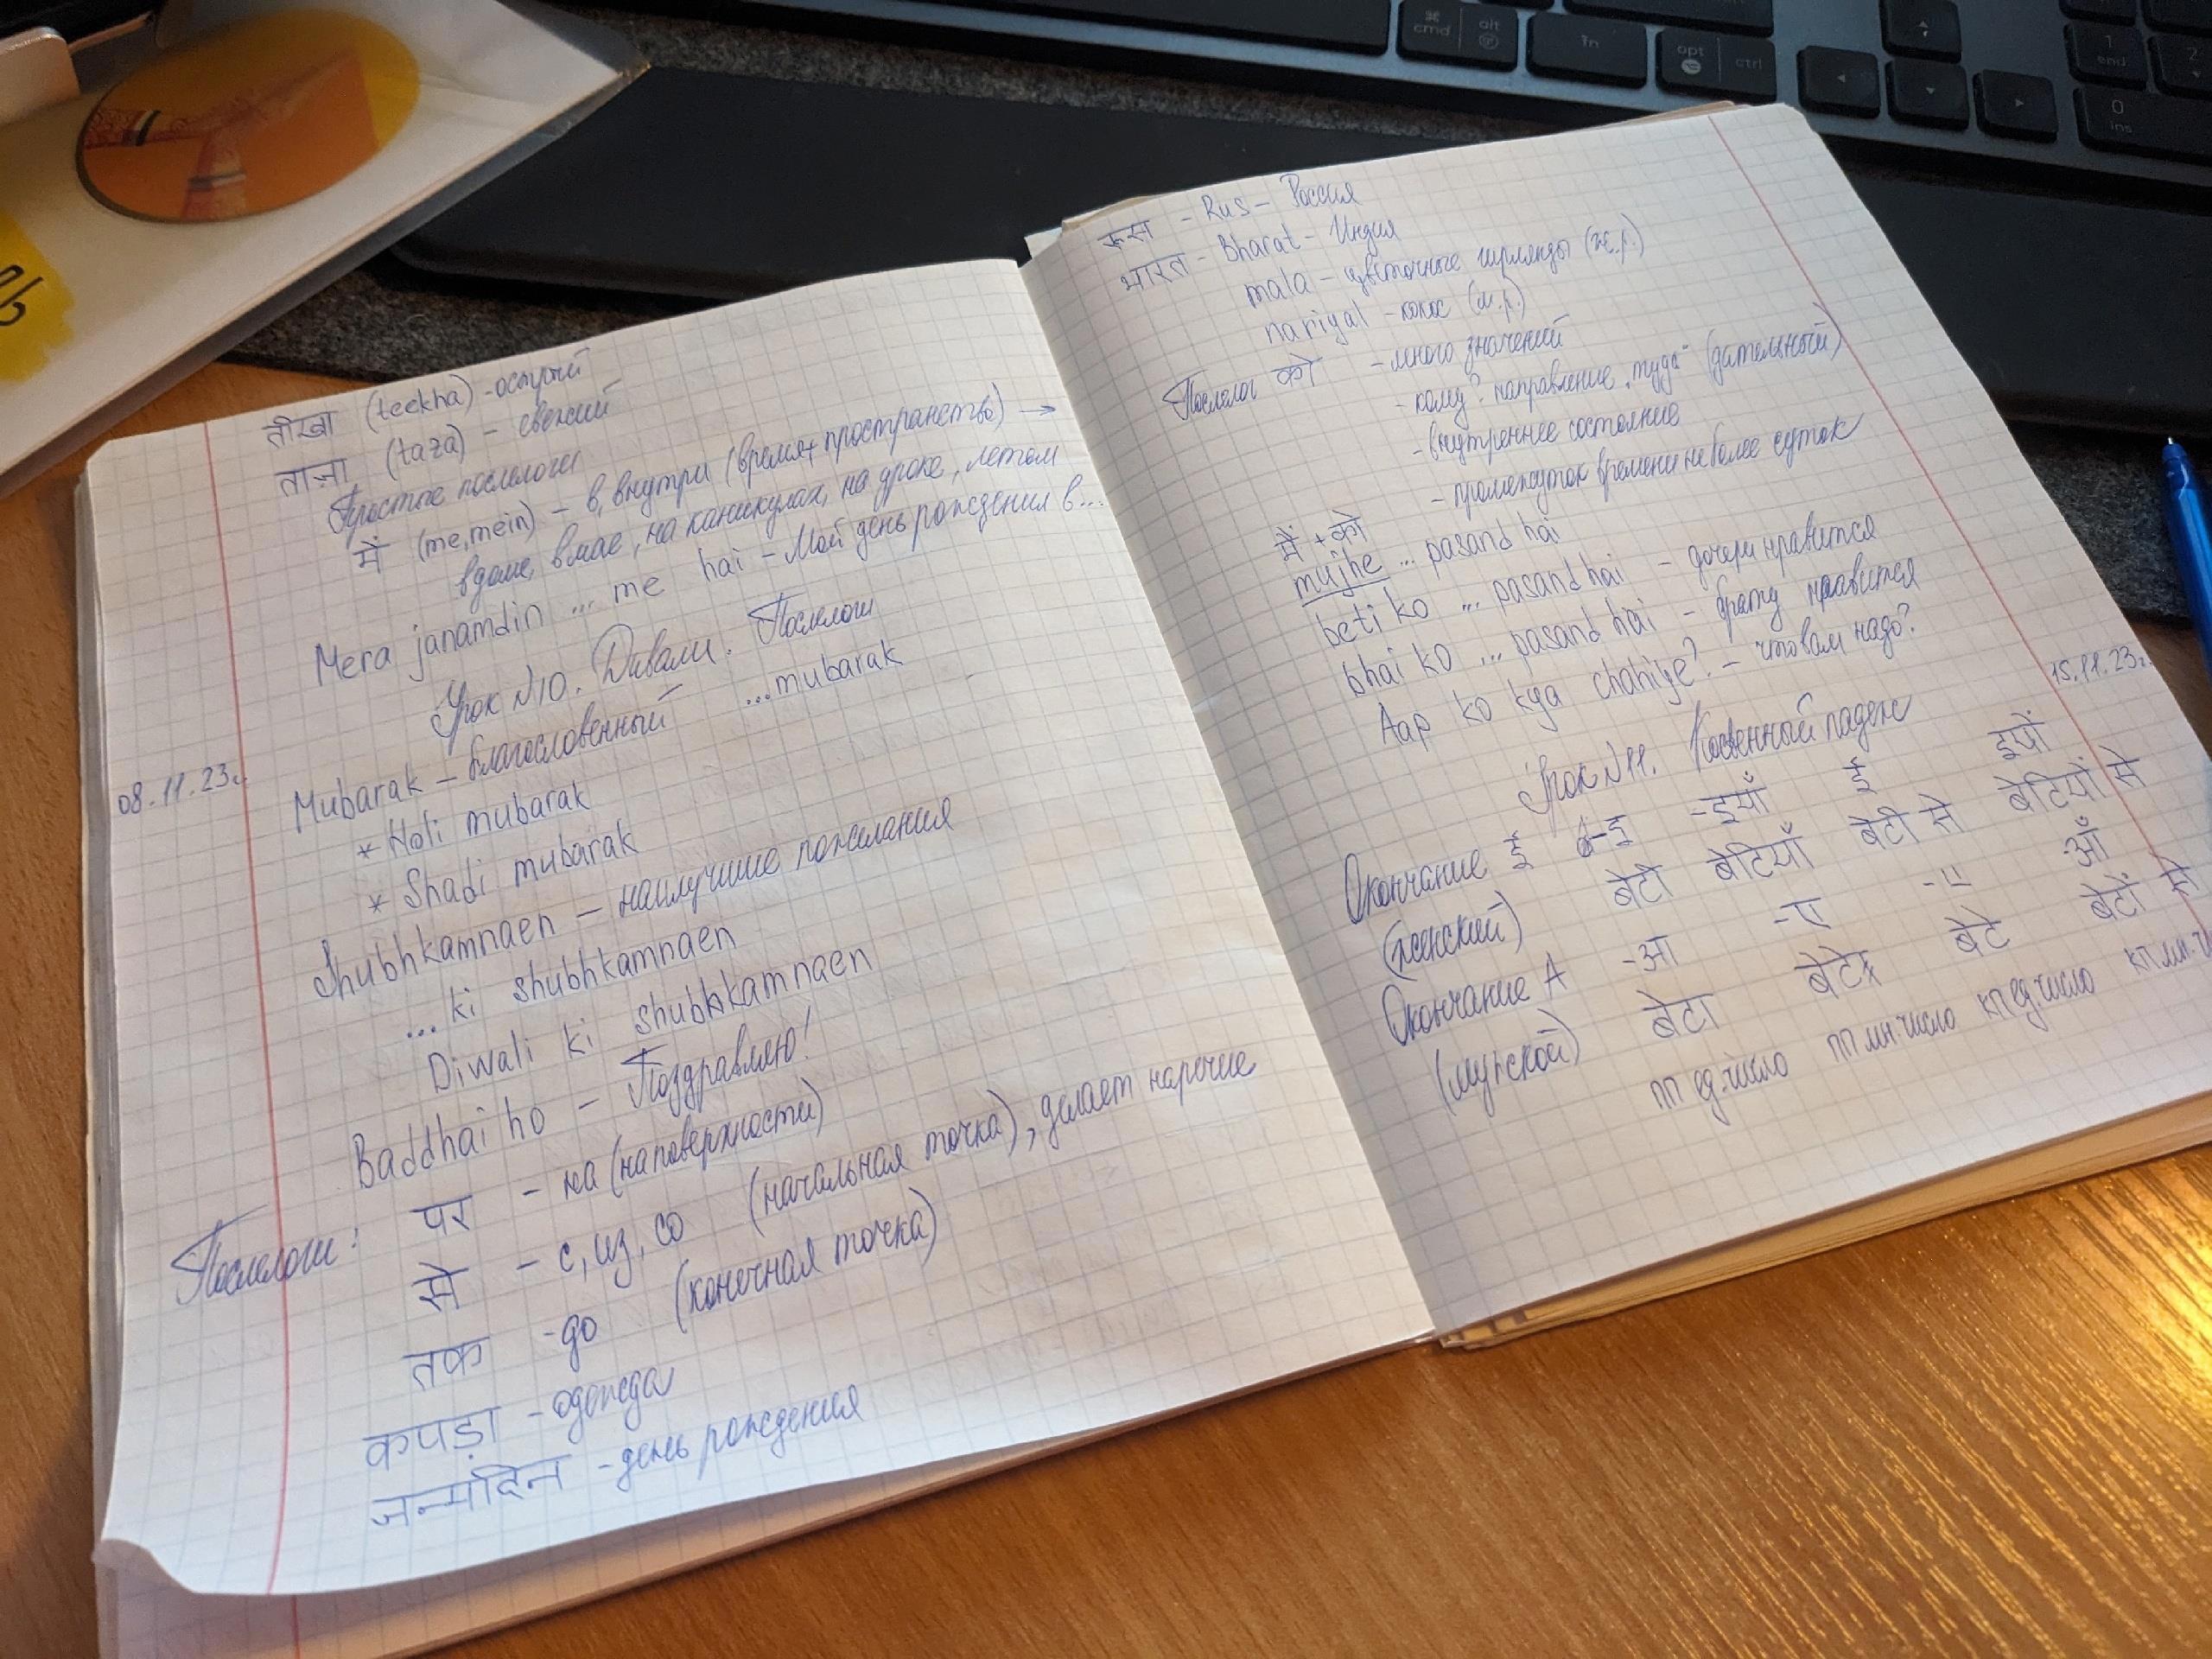 तीखा (teekha) - острый
ताज़ा (taza) - свежий
Простые послелоги
में (me, mein) - в, внутри (время + пространство) →
в доме, в мае, на каникулах, на уроке, летом
Mera janamdin ... me hai - Мой день рождения в...
Урок №10. Дивали. Послелоги
08.11.23г.
Mubarak - благословенный ...mubarak
* Holi mubarak
* Shadi mubarak
Shubhkamnaen - наилучшие пожелания
... ki shubhkamnaen
Diwali ki shubhkamnaen
Baddhai ho - Поздравляю!
Послелоги: पर - на (на поверхности)
से - с, из, со (начальная точка), делает наречие
तक - до (конечная точка)
कपड़ा - одежда
जन्मदिन - день рождения
रूस - Rus - Россия
भारत - Bharat - Индия
mala - цветочные гирлянды (ж.р.)
nariyal - кокос (м.р.)
Послелог को - много значений
- кому? направление "туда" (дательный)
- внутреннее состояние
- промежуток времени не более суток
मैं + को
mujhe ... pasand hai
beti ko ... pasand hai - дочери нравится
bhai ko ... pasand hai - брату нравится
Aap ko kya chahiye? - что вам надо?
15.11.23г.
Урок №11. Косвенный падеж
Окончание ई -ई -इयाँ ई इयों
(женский) बेटी बेटियाँ बेटी से बेटियों से
Окончание А -आ -ए -ए -ओं
(мужской) बेटा बेटे बेटे बेटों से
пп ед.число пп мн.число кп ед.число кп мн.ч
cmd
alt
fn
opt
ctrl
1
end
2
0
ins